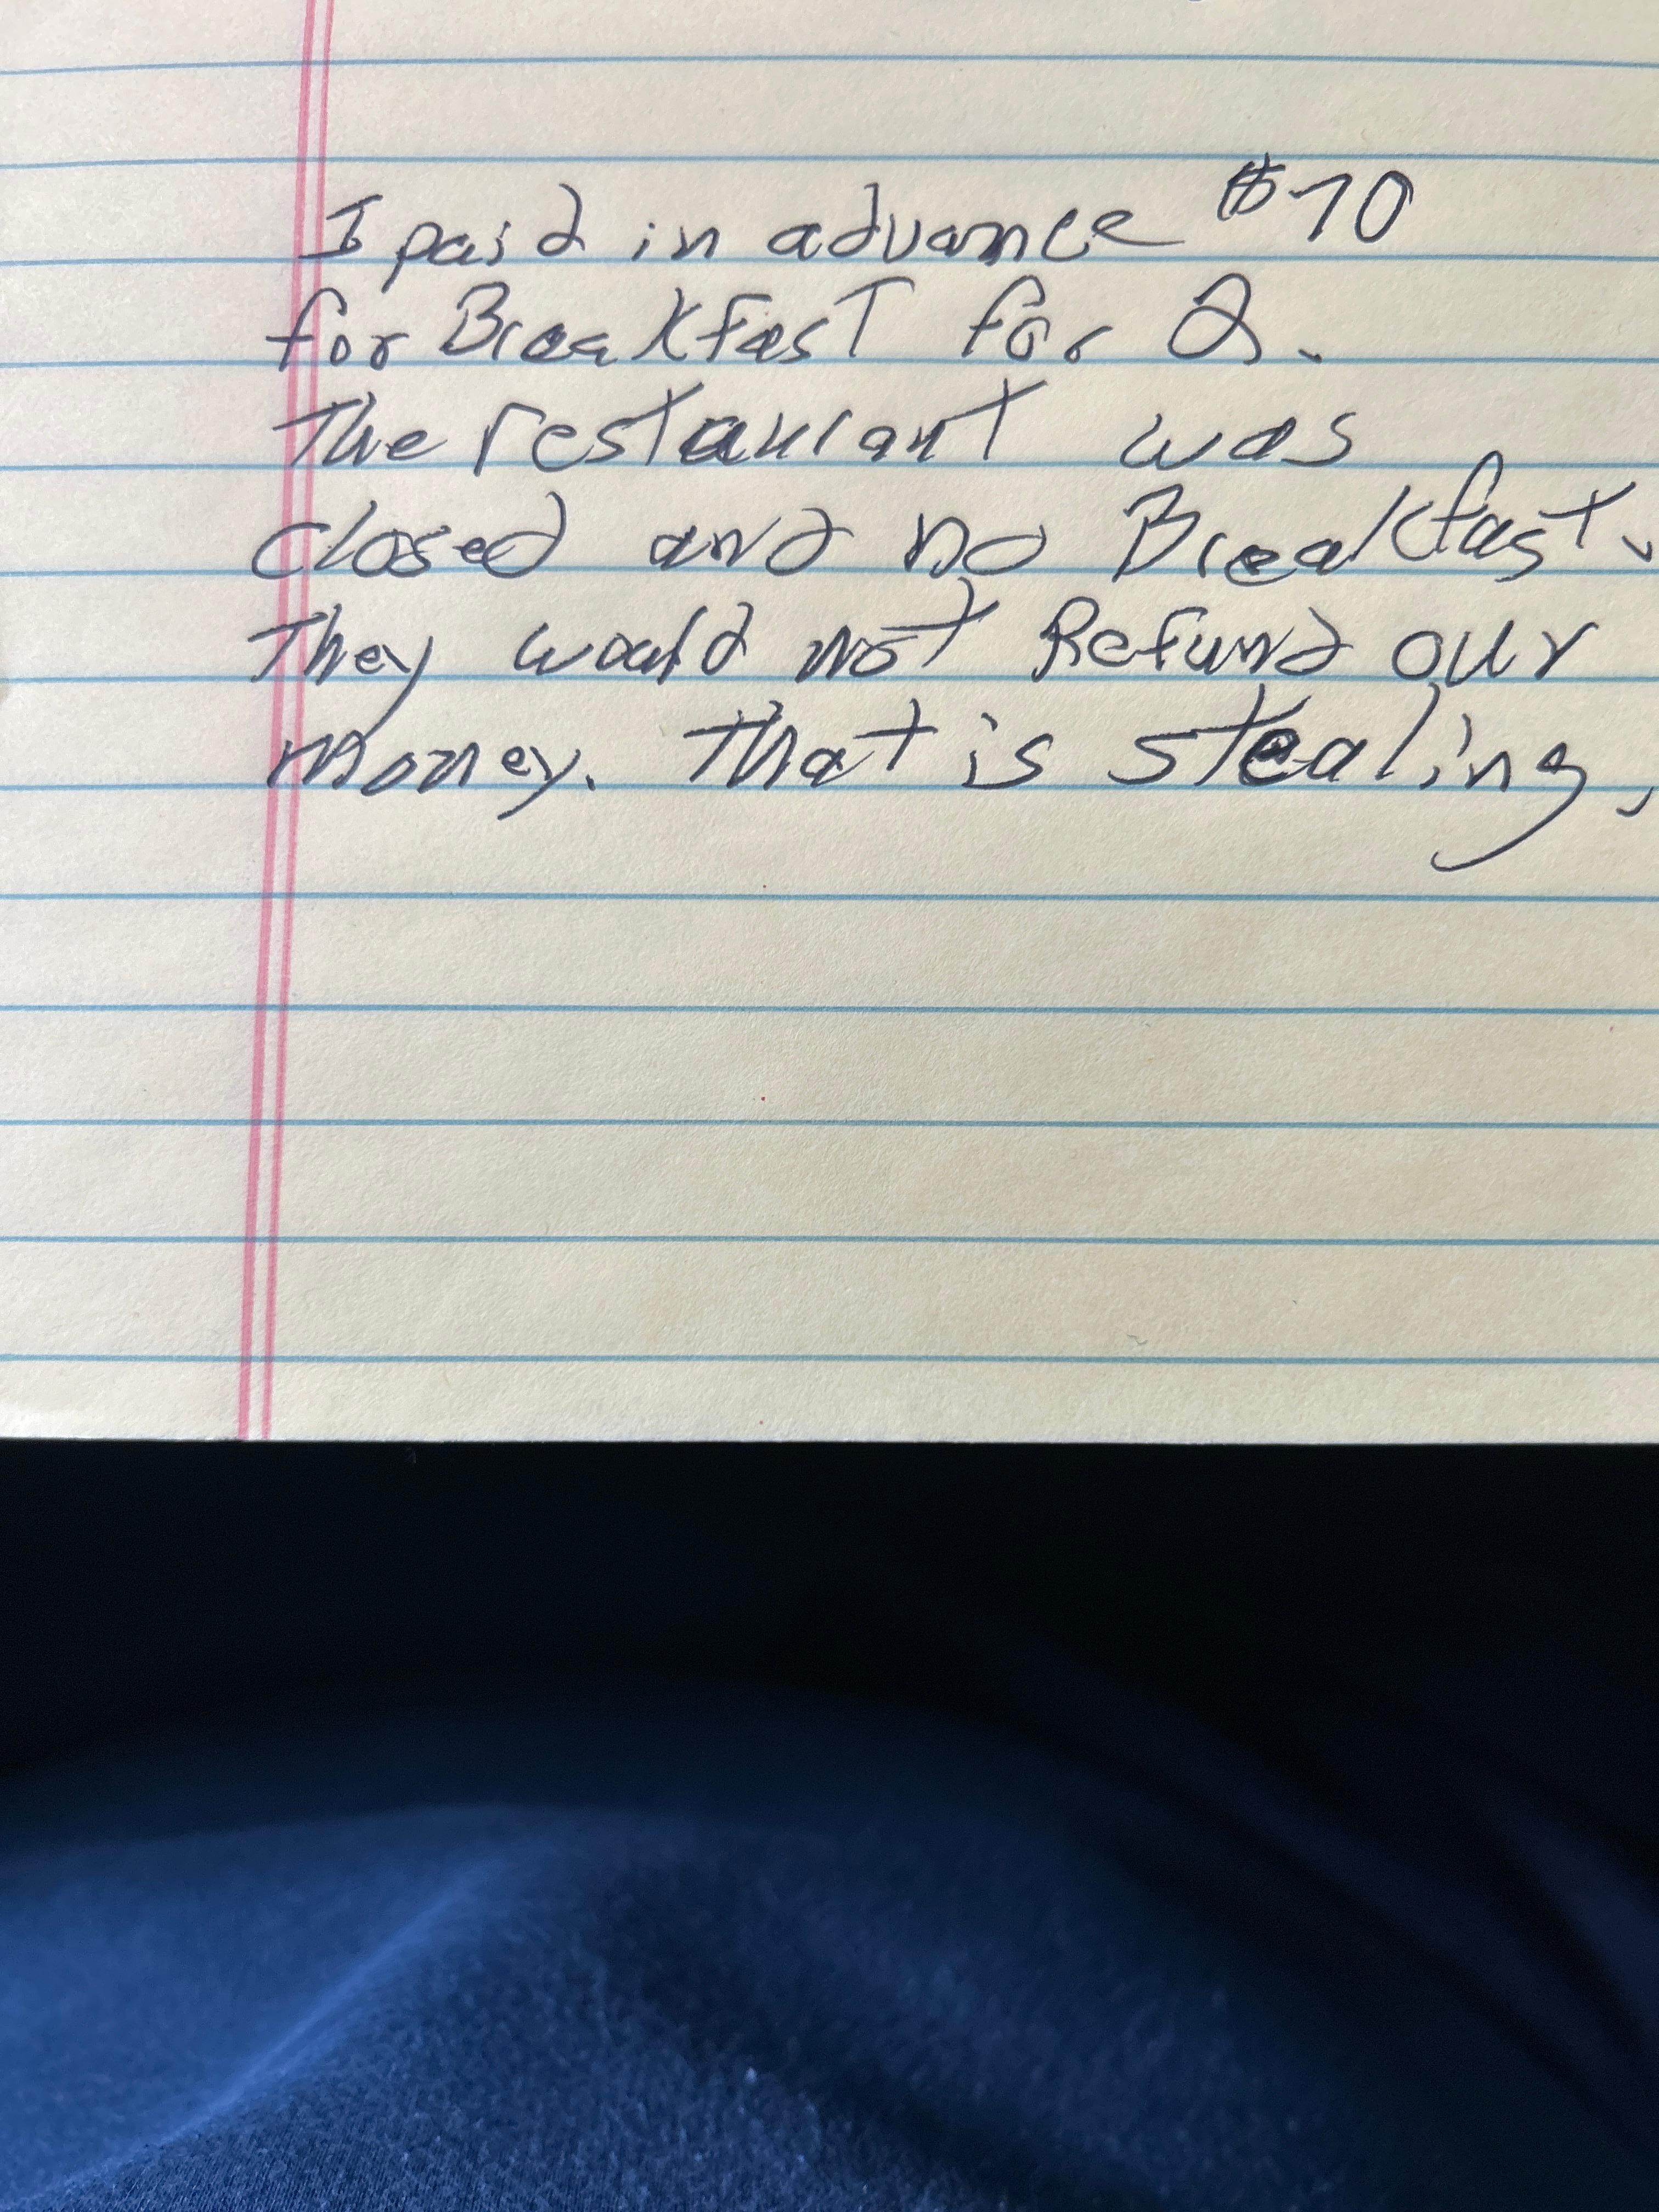 I paid in advance $70
for BreakfasT for 2.
The restaurant was
closed and no Breakfast.
They would not Refund our
money. That is stealing.